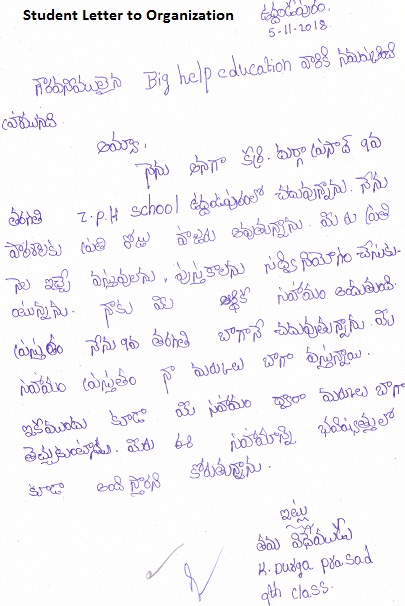 Student Letter to Organization
ఉద్దండపురం.
5-11-2018.
గౌరవనీయులైన Big help education వారికి నమస్కరించి
వ్రాయునది.
అమ్మా,
నేను అనగా కె. దుర్గా ప్రసాద్ 9వ
తరగతి Z.P.H school ఉద్దండపురంలో చదువున్నాను. నేను
పాఠశాలకు ప్రతి రోజు హాజరు అవుతున్నాను. మీరు ప్రతి
నెల ఇచ్చే వస్తువులను, పుస్తకాలను సద్వినియోగం చేసుకు-
ంటున్నాను. నాకు మీ ఆర్థిక సహాయం అందుతుంది.
ప్రస్తుతం నేను 9వ తరగతి బాగానే చదువుతున్నాను. మీ
సహాయం ప్రస్తుతం నా మార్కులు బాగా వస్తున్నాయి.
ఇకముందు కూడా మీ సహాయం ద్వారా మార్కులు బాగా
తెచ్చుకుంటాను. మీరు ఈ సహాయాన్ని భవిష్యత్తులో
కూడా అందిస్తారని కోరుతున్నాను.
ఇట్లు
తమ విధేయుడు
K. Durga prasad
9th class.